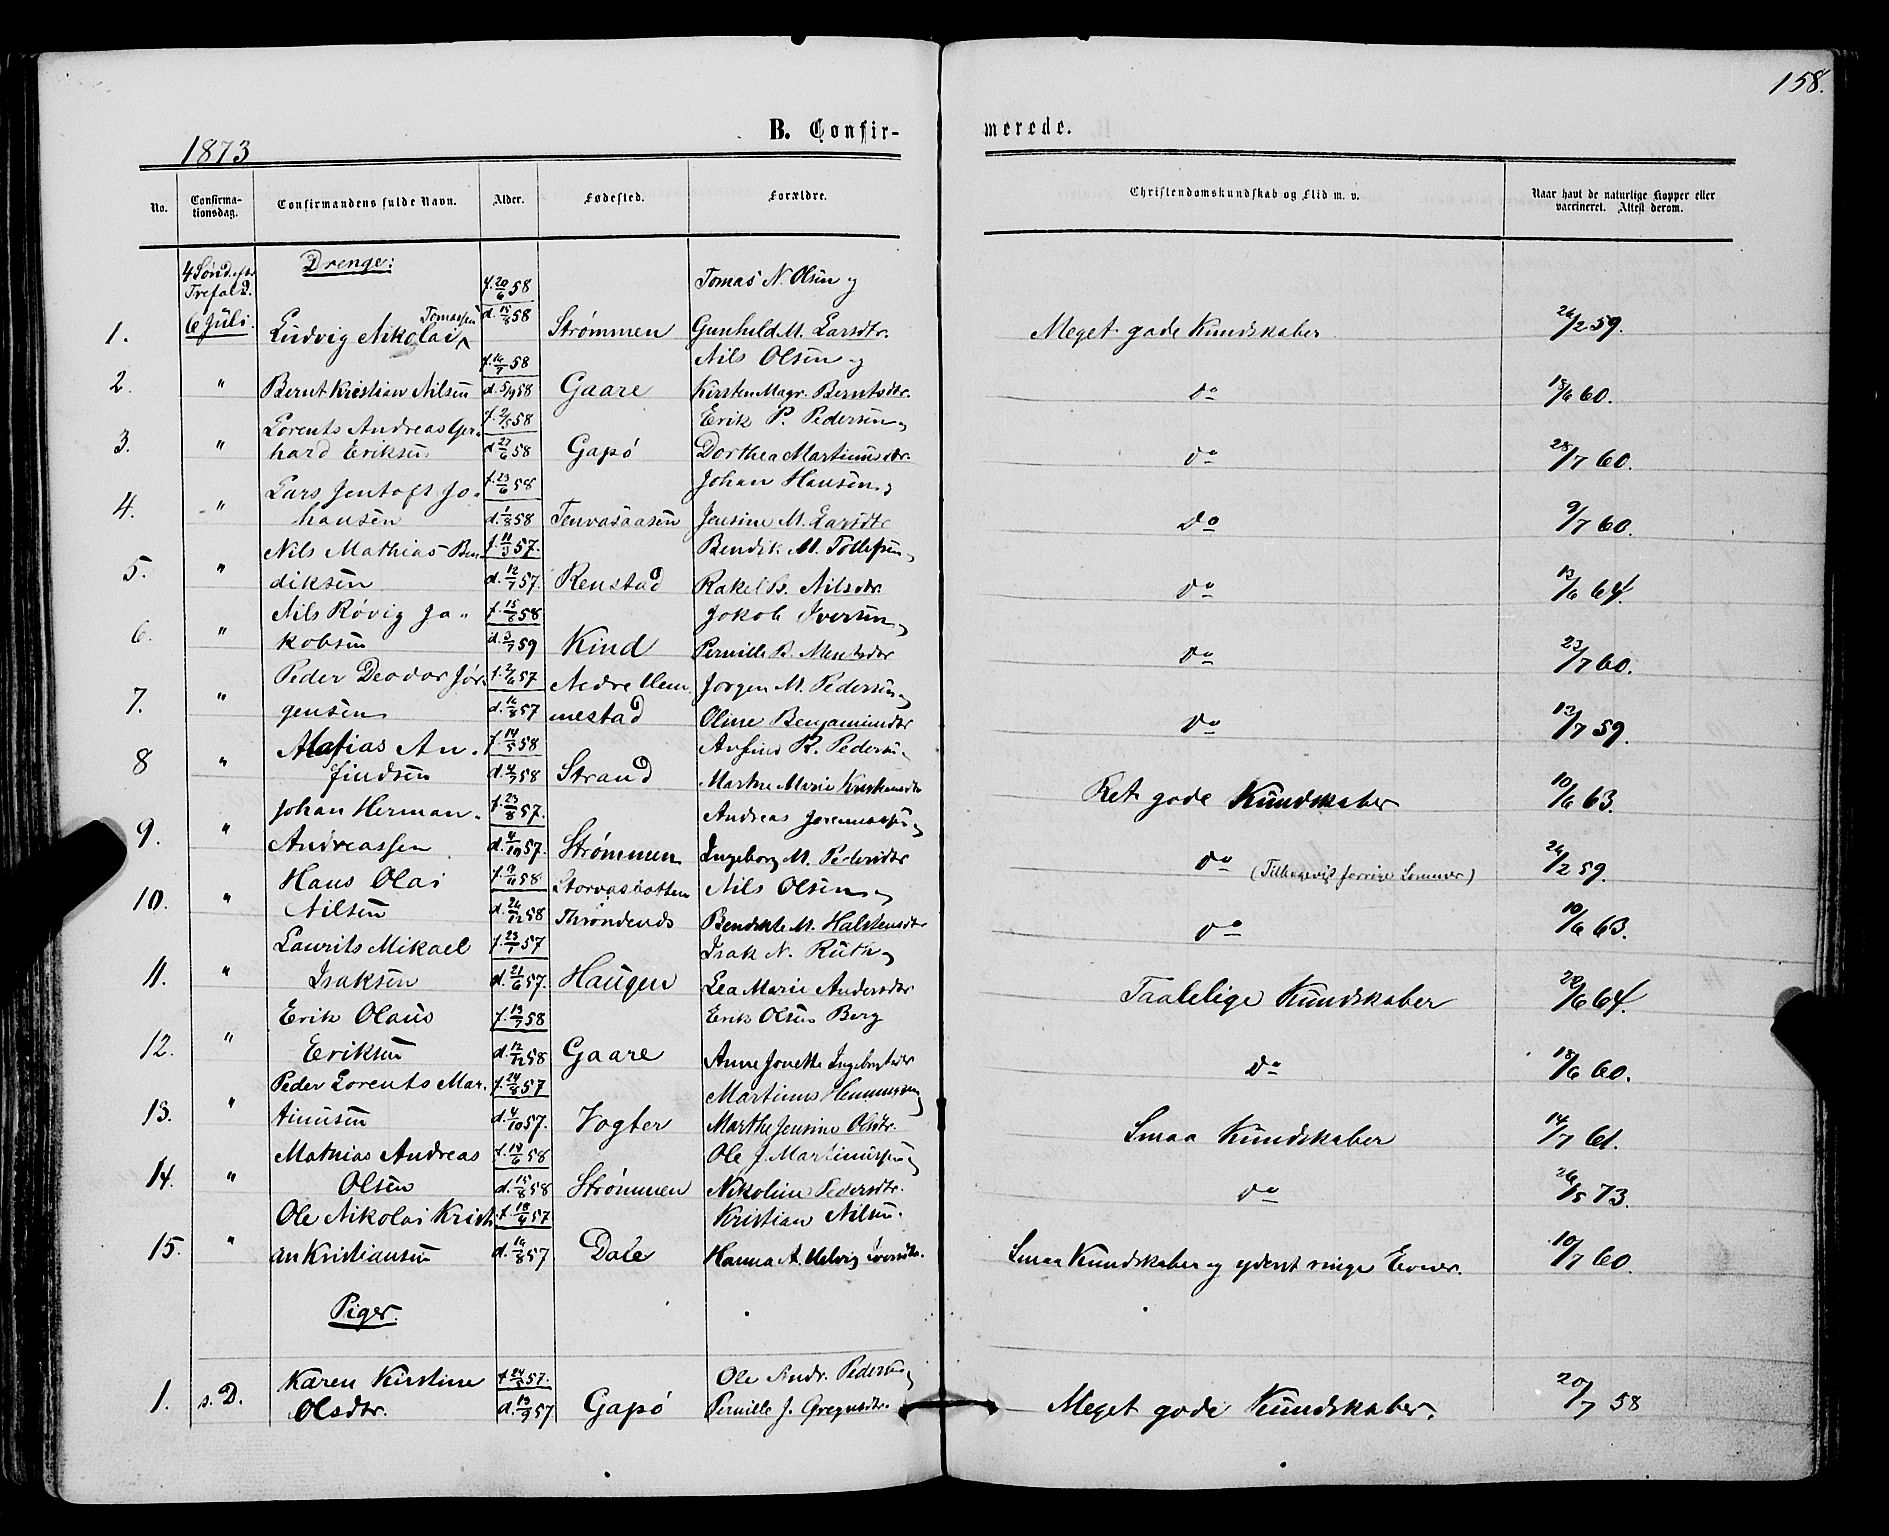 158.
1873
B. Confirmerede.
No. Confirmationsdag. Confirmandens fulde Navn. Alder. Fødested. Forældre. Christendomskundskab og Flid m. v. Naar havt de naturlige Kopper eller vaccineret. Attest derom.
4 Sønd. efter Trefald. 6 Juli.
Drenge:
1. Ludvig Nikolai Tomassen f. 20/6 58 d. 15/8 58 Strømmen Tomas N. Olsen og Gunhild M. Larsdtr. Meget gode Kundskaber 24/2 59.
2. " Bernt Kristian Nilsen f. 16/7 58 d. 5/9 58 Gaare Nils Olsen og Kirsten Magr. Berntsdtr. do 18/6 60.
3. " Lorents Andreas Gerhard Eriksen f. 2/5 58 d. 27/6 58 Gapø Erik P. Pedersen og Dorthea Martinusdtr. do 28/7 60.
4. " Lars Jentoft Johansen f. 23/6 58 d. 1/8 58 Tenvasaasen Johan Hansen og Jensine M. Larsdtr do 9/7 60.
5. " Nils Mathias Bendiksen f. 11/3 57. d. 12/7 57. Renstad Bendik M. Tollefsen og Rakel B. Nilsdtr. do 13/6 64.
6. " Nils Røvig Jakobsen f. 15/8 58 d. 3/7 59 Kind Jokob Iversen og Pernille B. Mentsdtr do 23/7 60.
7. " Peder Deodor Jørgensen f. 2/6 57 d. 16/8 57 Nedre Hemmestad Jørgen M. Pedersen og Oline Benjamindtr do 13/7 59.
8 " Matias Anfindsen f. 14/5 58 d. 4/7 58 Strand Anfind R. Pedersen og Martine Marie Kristensdtr Ret gode Kundskaber 10/6 63.
9. " Johan Herman Andreassen f. 23/8 57. d. 4/10 57. Strømmen Andreas Joremiassen og Ingeborg M. Pedersdtr do (Tilbagevist forrige Sommer) 24/2 59.
10. " Hans Olai Nilsen f. 9/11 58 d. 26/12 58 Storvasbotten Throndenæs Nils Olsen og Bendikte M. Halstensdtr do 10/6 63.
11. " Laurits Mikael Isaksen f. 23/1 57 d. 21/6 57. Haugen Isak N. Ruth og Lea Marie Andersdtr Taalelige Kundskaber 22/6 64.
12. " Erik Olaus Eriksen f. 13/7 58 d. 12/12 58 Gaare Erik Olsen Berg Anne Jonette Ingebrgtsdtr do 18/6 60.
13. " Peder Lorents Martinusen f. 24/8 57 d. 4/10 57. Vogter Martinus Hemmingsen og Marthe Jensine Olsdtr. Smaa Kundskaber 14/7 61.
14. " Mathias Andreas Olsen f. 19/6 58 d. 15/8 58 Strømmen Ole J. Martinussen og Nikoline Pedersdtr. do 26/5 73.
15. " Ole Nikolai Kristian Kristiansen f. 18/4 57 d. 16/8 57 Dale Kristian Nilsen. Hanna A. Helvig Iversdtr. Smaa Kundskaber og yderst ringe Evner. 10/7 60.
Piger.
1. s. D. Karen Kirstine Olsdtr. f. 24/5 57. d. 13/9 57 Gapø Ole Andr. Pedersen og Pernille J. Gregusdtr. Meget gode Kundskaber. 20/7 58